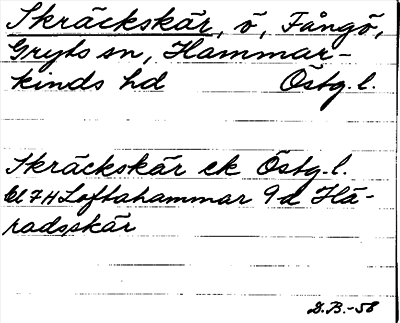 Skräckskär, ö, Fångö,
Gryts sn, Hammar-
kinds hd Östg. l.
Skräckskär ek Östg. l.
Bl 7H Loftahammar 9 d Hä-
radsskär
D.B.-58